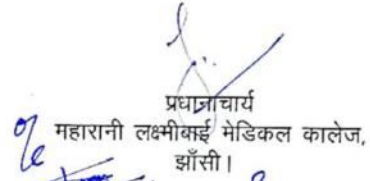 प्रधानाचार्य
महारानी लक्ष्मीबाई मेडिकल कालेज,
झाँसी।